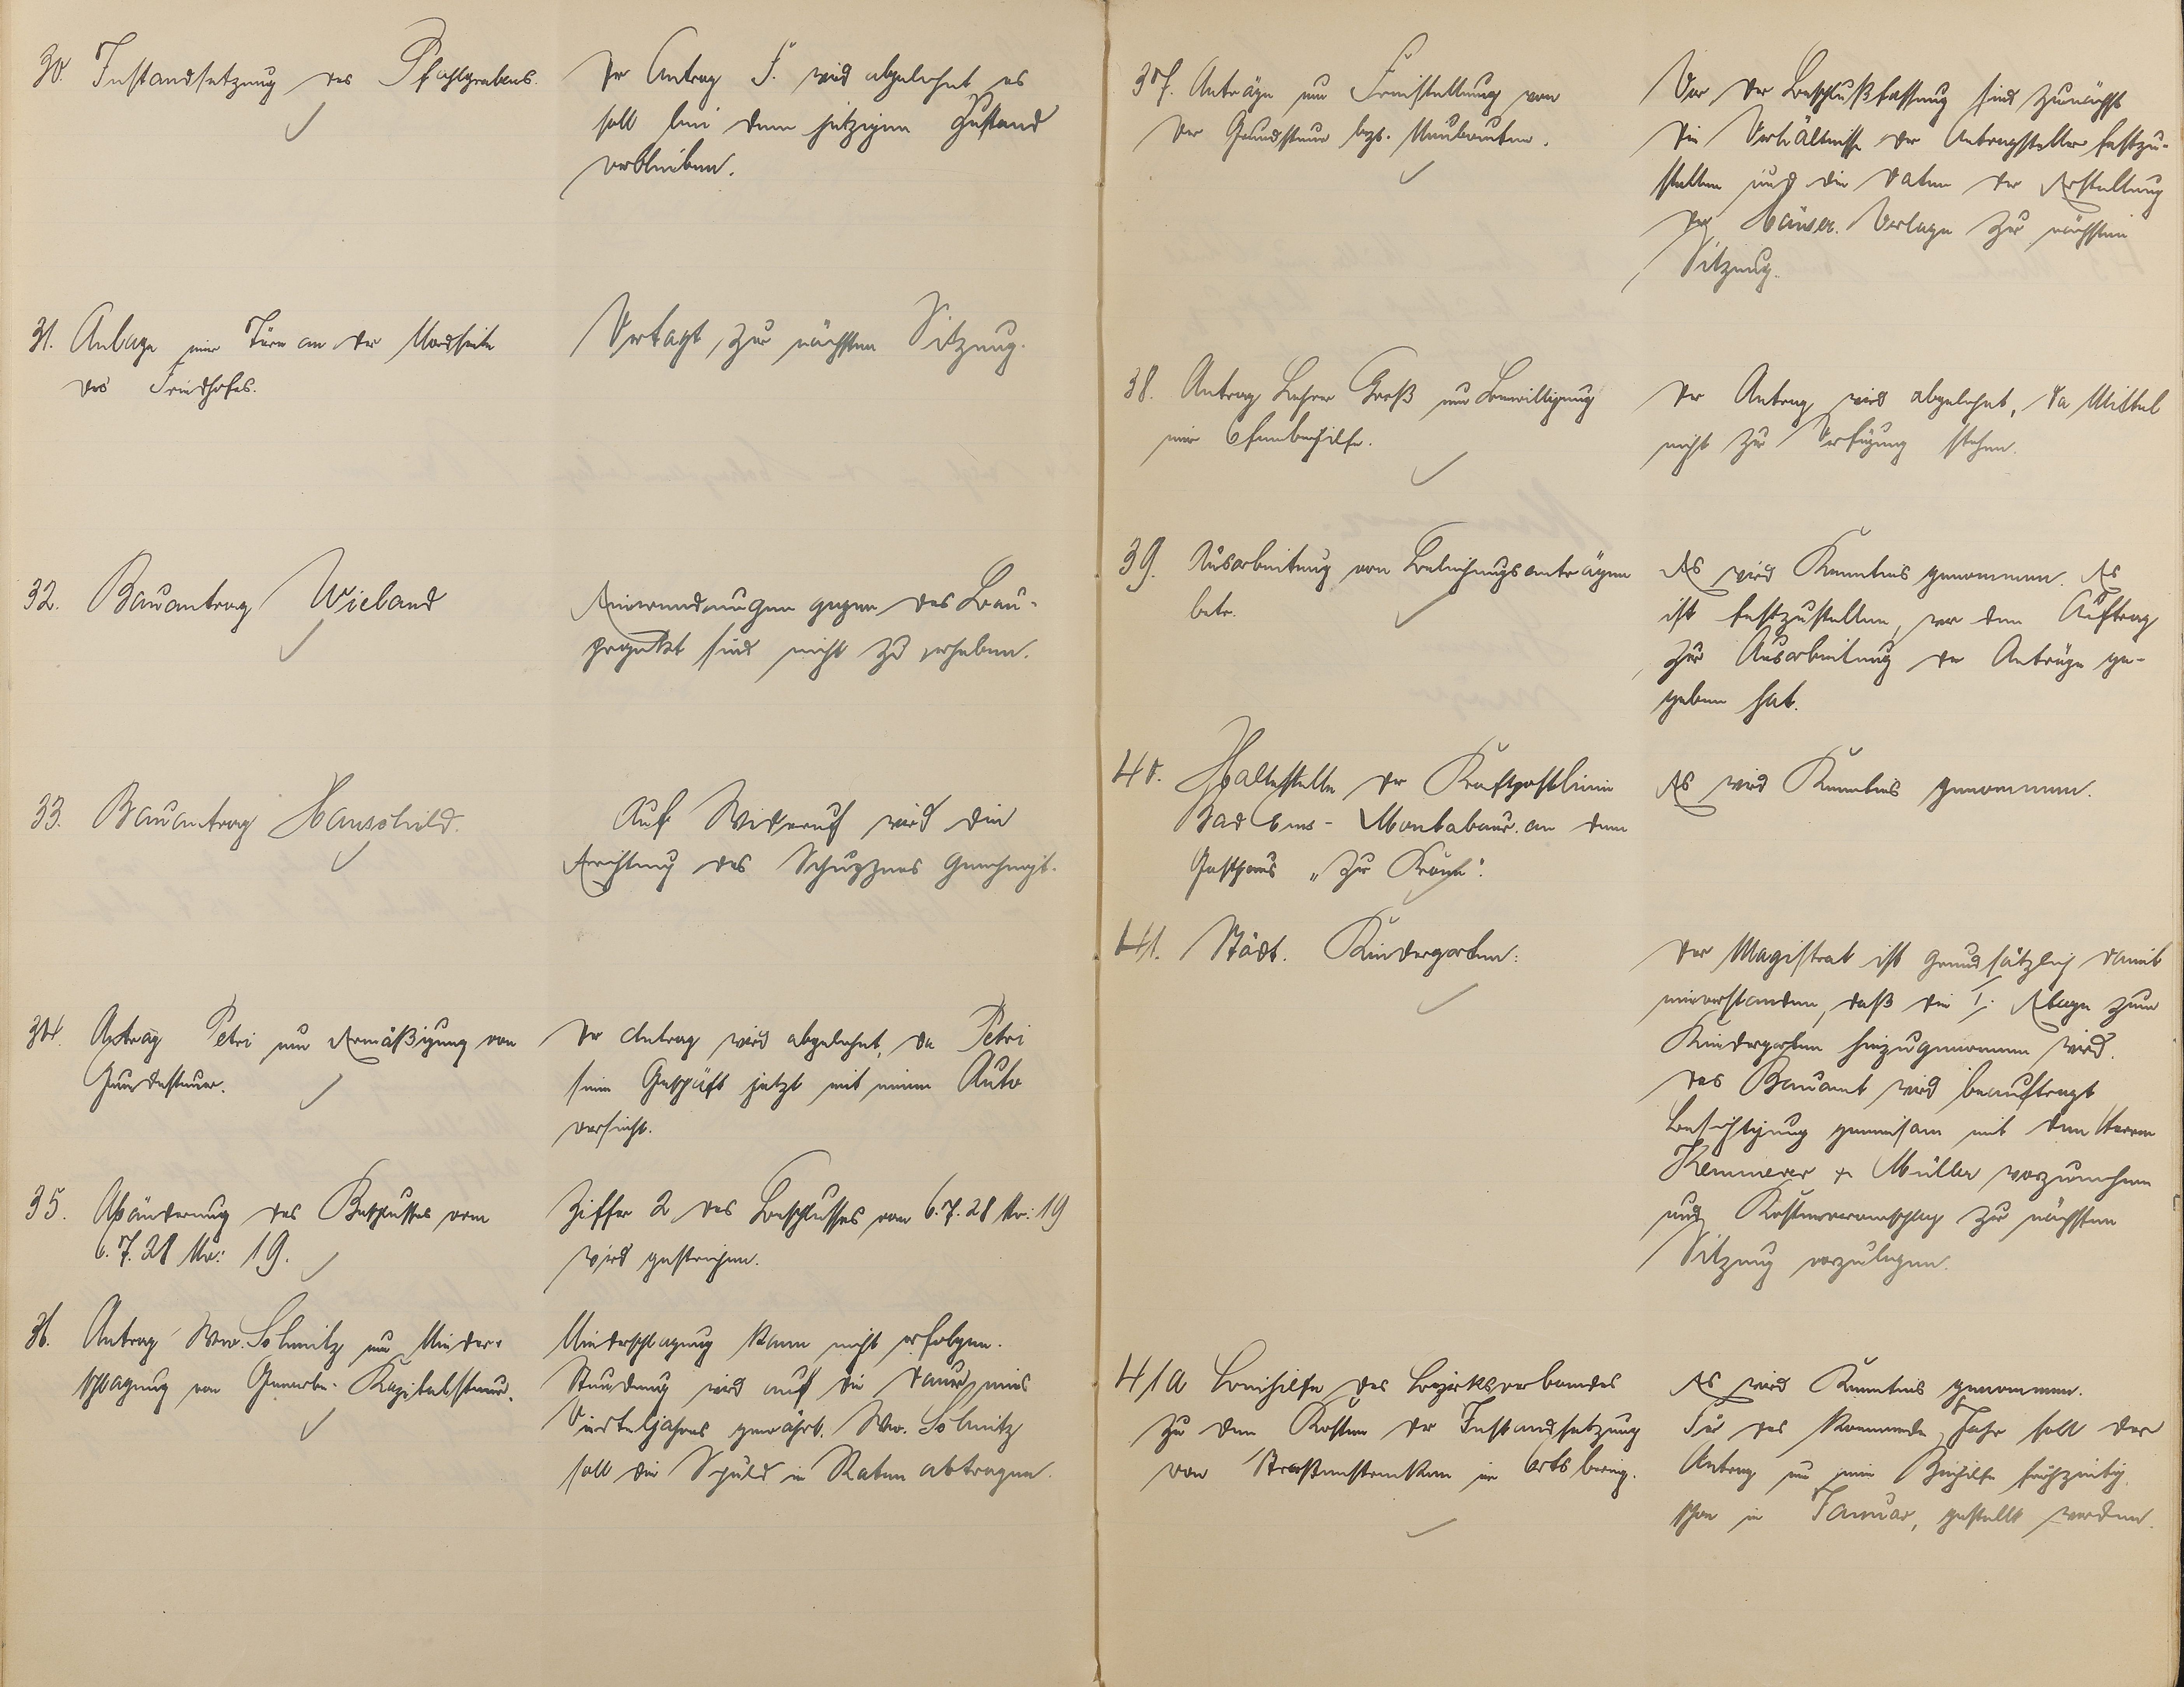 30. Instandsetzung des Pfahlgrabens.
Der Antrag F. wird abgelehnt, es
soll bei dem jetzigen Zustand
verbleiben.
31. Anlage einer Türe an der Nordseite
des Friedhofes.
Vertagt, zur nächsten Sitzung.
32. Bauantrag Wieland
Einwendungen gegen das Bau-
projekt sind nicht zu erheben.
33. Bauantrag Hauschild.
Auf Widerruf wird die
Errichtung des Schuppens genehmigt.
34. Antrag Petri um Ermäßigung von
Hundesteuer.
Der Antrag wird abgelehnt, da Petri
sein Geschäft jetzt mit einem Auto
versieht.
35. Abänderung des Beschlusses vom
6.7.28 Nr: 19.
Ziffer 2 des Beschlusses vom 6.7.28 Nr: 19
wird gestrichen.
36. Antrag Ww. Solmitz um Nieder-
schlagung von Gewerbe-Kapitalsteuer.
Niederschlagung kann nicht erfolgen.
Stundung wird auf die Dauer eines
Vierteljahres gewährt. Ww. Solmitz
soll die Schuld in Raten abtragen.
37. Anträge um Freistellung von
der Grundsteuer bzgl. Neubauten.
Vor der Beschlußfassung sind zunächst
die Verhältnisse der Antragsteller festzu-
stellen und die Daten der Erstellung
der Häuser. Vorlage zur nächsten
Sitzung.
38. Antrag Lehrer Groß um Bewilligung
einer Ofenbeihilfe.
Der Antrag wird abgelehnt, da Mittel
nicht zur Verfügung stehen.
39. Ausarbeitung von Beleihungsanträgen
betr.
Es wird Kenntnis genommen. Es
ist festzustellen, wer den Auftrag
zur Ausarbeitung der Anträge ge-
geben hat.
40. Haltestelle der Kraftpostlinie
Bad Ems - Montabaur an dem
Gasthaus „Zur Krone".
Es wird Kenntnis genommen.
41. Städt. Kindergarten:
Der Magistrat ist grundsätzlich damit
einverstanden, daß die I. Etage zum
Kindergarten hinzugenommen wird.
Das Bauamt wird beauftragt
Besichtigung gemeinsam mit den Herren
Kemmerer + Müller vorzunehmen
und Kostenvoranschlag zur nächsten
Sitzung vorzulegen.
41a Beihilfe des Bezirksverbandes
zu den Kosten der Instandsetzung
von Straßenstrecken im Ortsbering.
Es wird Kenntnis genommen.
Für das kommende Jahr soll der
Antrag um eine Beihilfe frühzeitig,
schon im Januar, gestellt werden.